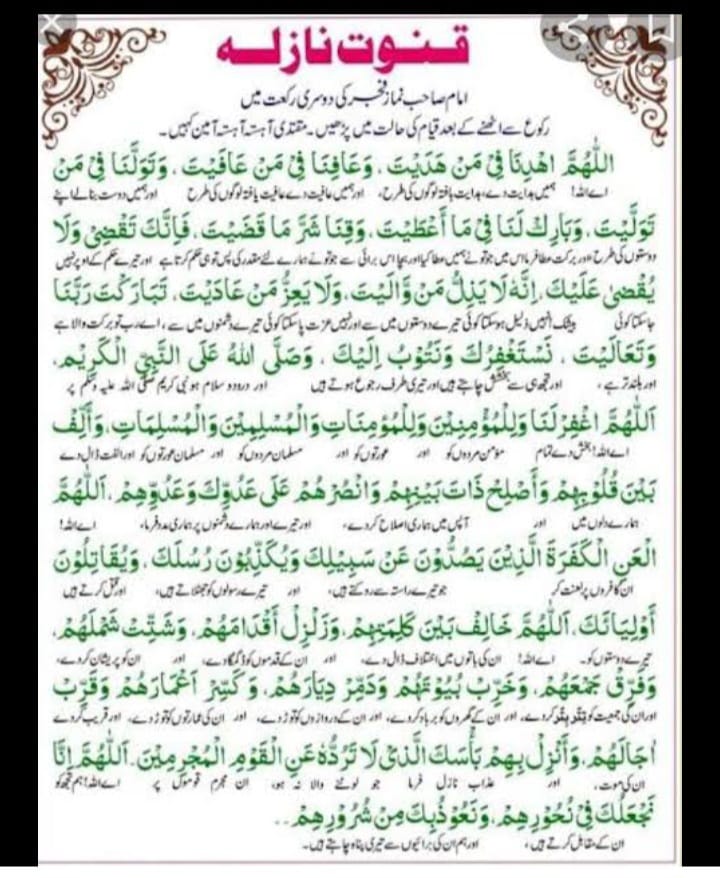 قنوت نازلہ
امام صاحب نماز فجر کی دوسری رکعت میں
رکوع سے اٹھنے کے بعد قیام کی حالت میں پڑھیں۔ مقتدی آہستہ آہستہ آمین کہیں۔
اَللّٰهُمَّ اهْدِنَا فِىْ مَنْ هَدَيْتَ، وَعَافِنَا فِىْ مَنْ عَافَيْتَ، وَتَوَلَّنَا فِىْ مَنْ
اے اللہ! ہمیں ہدایت دے، ہدایت یافتہ لوگوں کی طرح، اور ہمیں عافیت دے عافیت یافتہ لوگوں کی طرح اور ہمیں دوست بنا لے اپنے
تَوَلَّيْتَ، وَبَارِكْ لَنَا فِىْ مَا أَعْطَيْتَ، وَقِنَا شَرَّ مَا قَضَيْتَ، فَإِنَّكَ تَقْضِىْ وَلَا
دوستوں کی طرح اور برکت عطا فرما اس میں جو تو نے ہمیں عطا کیا اور بچا اس برائی سے جو تو نے ہمارے لئے مقدر کی پس تو ہی حکم کرتا ہے اور تیرے حکم کے اوپر نہیں
يُقْضٰى عَلَيْكَ، إِنَّهٗ لَا يَذِلُّ مَنْ وَّالَيْتَ، وَلَا يَعِزُّ مَنْ عَادَيْتَ، تَبَارَكْتَ رَبَّنَا
جا سکتا کوئی بیشک انہیں ذلیل ہو سکتا کوئی تیرے دوستوں میں سے اور نہیں عزت پا سکتا کوئی تیرے دشمنوں میں سے، اے رب تو برکت والا ہے
وَتَعَالَيْتَ، نَسْتَغْفِرُكَ وَنَتُوْبُ إِلَيْكَ، وَصَلَّى اللهُ عَلَى النَّبِىِّ الْكَرِيْمِ،
اور بلند تر ہے، اور تجھ ہی سے بخشش چاہتے ہیں اور تیری طرف رجوع ہوتے ہیں اور درود و سلام ہو نبی کریم صلی اللہ علیہ وسلم پر
اَللّٰهُمَّ اغْفِرْ لَنَا وَلِلْمُؤْمِنِيْنَ وَلِلْمُؤْمِنَاتِ وَالْمُسْلِمِيْنَ وَالْمُسْلِمَاتِ، وَأَلِّفْ
اے اللہ! بخش دے تمام مؤمن مردوں کو اور عورتوں کو اور مسلمان مردوں کو اور مسلمان عورتوں کو اور الفت ڈال دے
بَيْنَ قُلُوْبِهِمْ وَأَصْلِحْ ذَاتَ بَيْنِهِمْ وَانْصُرْهُمْ عَلٰى عَدُوِّكَ وَعَدُوِّهِمْ، اَللّٰهُمَّ
ہمارے دلوں میں اور آپس میں ہماری اصلاح کر دے، اور تیرے اور ہمارے دشمنوں پر ہماری مدد فرما، اے اللہ!
الْعَنِ الْكَفَرَةَ الَّذِيْنَ يَصُدُّوْنَ عَنْ سَبِيْلِكَ وَيُكَذِّبُوْنَ رُسُلَكَ، وَيُقَاتِلُوْنَ
ان کافروں پر لعنت کر جو تیرے راستہ سے روکتے ہیں، اور تیرے رسولوں کو جھٹلاتے ہیں، اور قتل کرتے ہیں
أَوْلِيَائَكَ، اَللّٰهُمَّ خَالِفْ بَيْنَ كَلِمَتِهِمْ، وَزَلْزِلْ أَقْدَامَهُمْ، وَشَتِّتْ شَمْلَهُمْ،
تیرے دوستوں کو۔ اے اللہ! ان کی باتوں میں اختلاف ڈال دے، اور ان کے قدموں کو ڈگمگا دے، اور ان کو پریشان کر دے،
وَفَرِّقْ جَمْعَهُمْ، وَخَرِّبْ بُيُوْتَهُمْ وَدَمِّرْ دِيَارَهُمْ، وَكَسِّرْ اَعْمَارَهُمْ وَقَرِّبْ
اور ان کی جمعیت کو کر دے، اور ان کے گھروں کو برباد کر دے، اور ان کے دروازوں کو توڑ دے، اور ان کی عمارتوں کو توڑ دے، اور قریب کر دے
اٰجَالَهُمْ، وَأَنْزِلْ بِهِمْ بَأْسَكَ الَّذِىْ لَا تَرُدُّهٗ عَنِ الْقَوْمِ الْمُجْرِمِيْنَ، اَللّٰهُمَّ إِنَّا
ان کی موت، اور عذاب نازل فرما جو لوٹنے والا نہ ہو، ان مجرم قوموں پر اے اللہ! ہم تجھ کو
نَجْعَلُكَ فِىْ نُحُوْرِهِمْ، وَنَعُوْذُ بِكَ مِنْ شُرُوْرِهِمْ۔۔
ان کے مقابل کرتے ہیں، اور ہم ان کی برائیوں سے تیری پناہ چاہتے ہیں۔